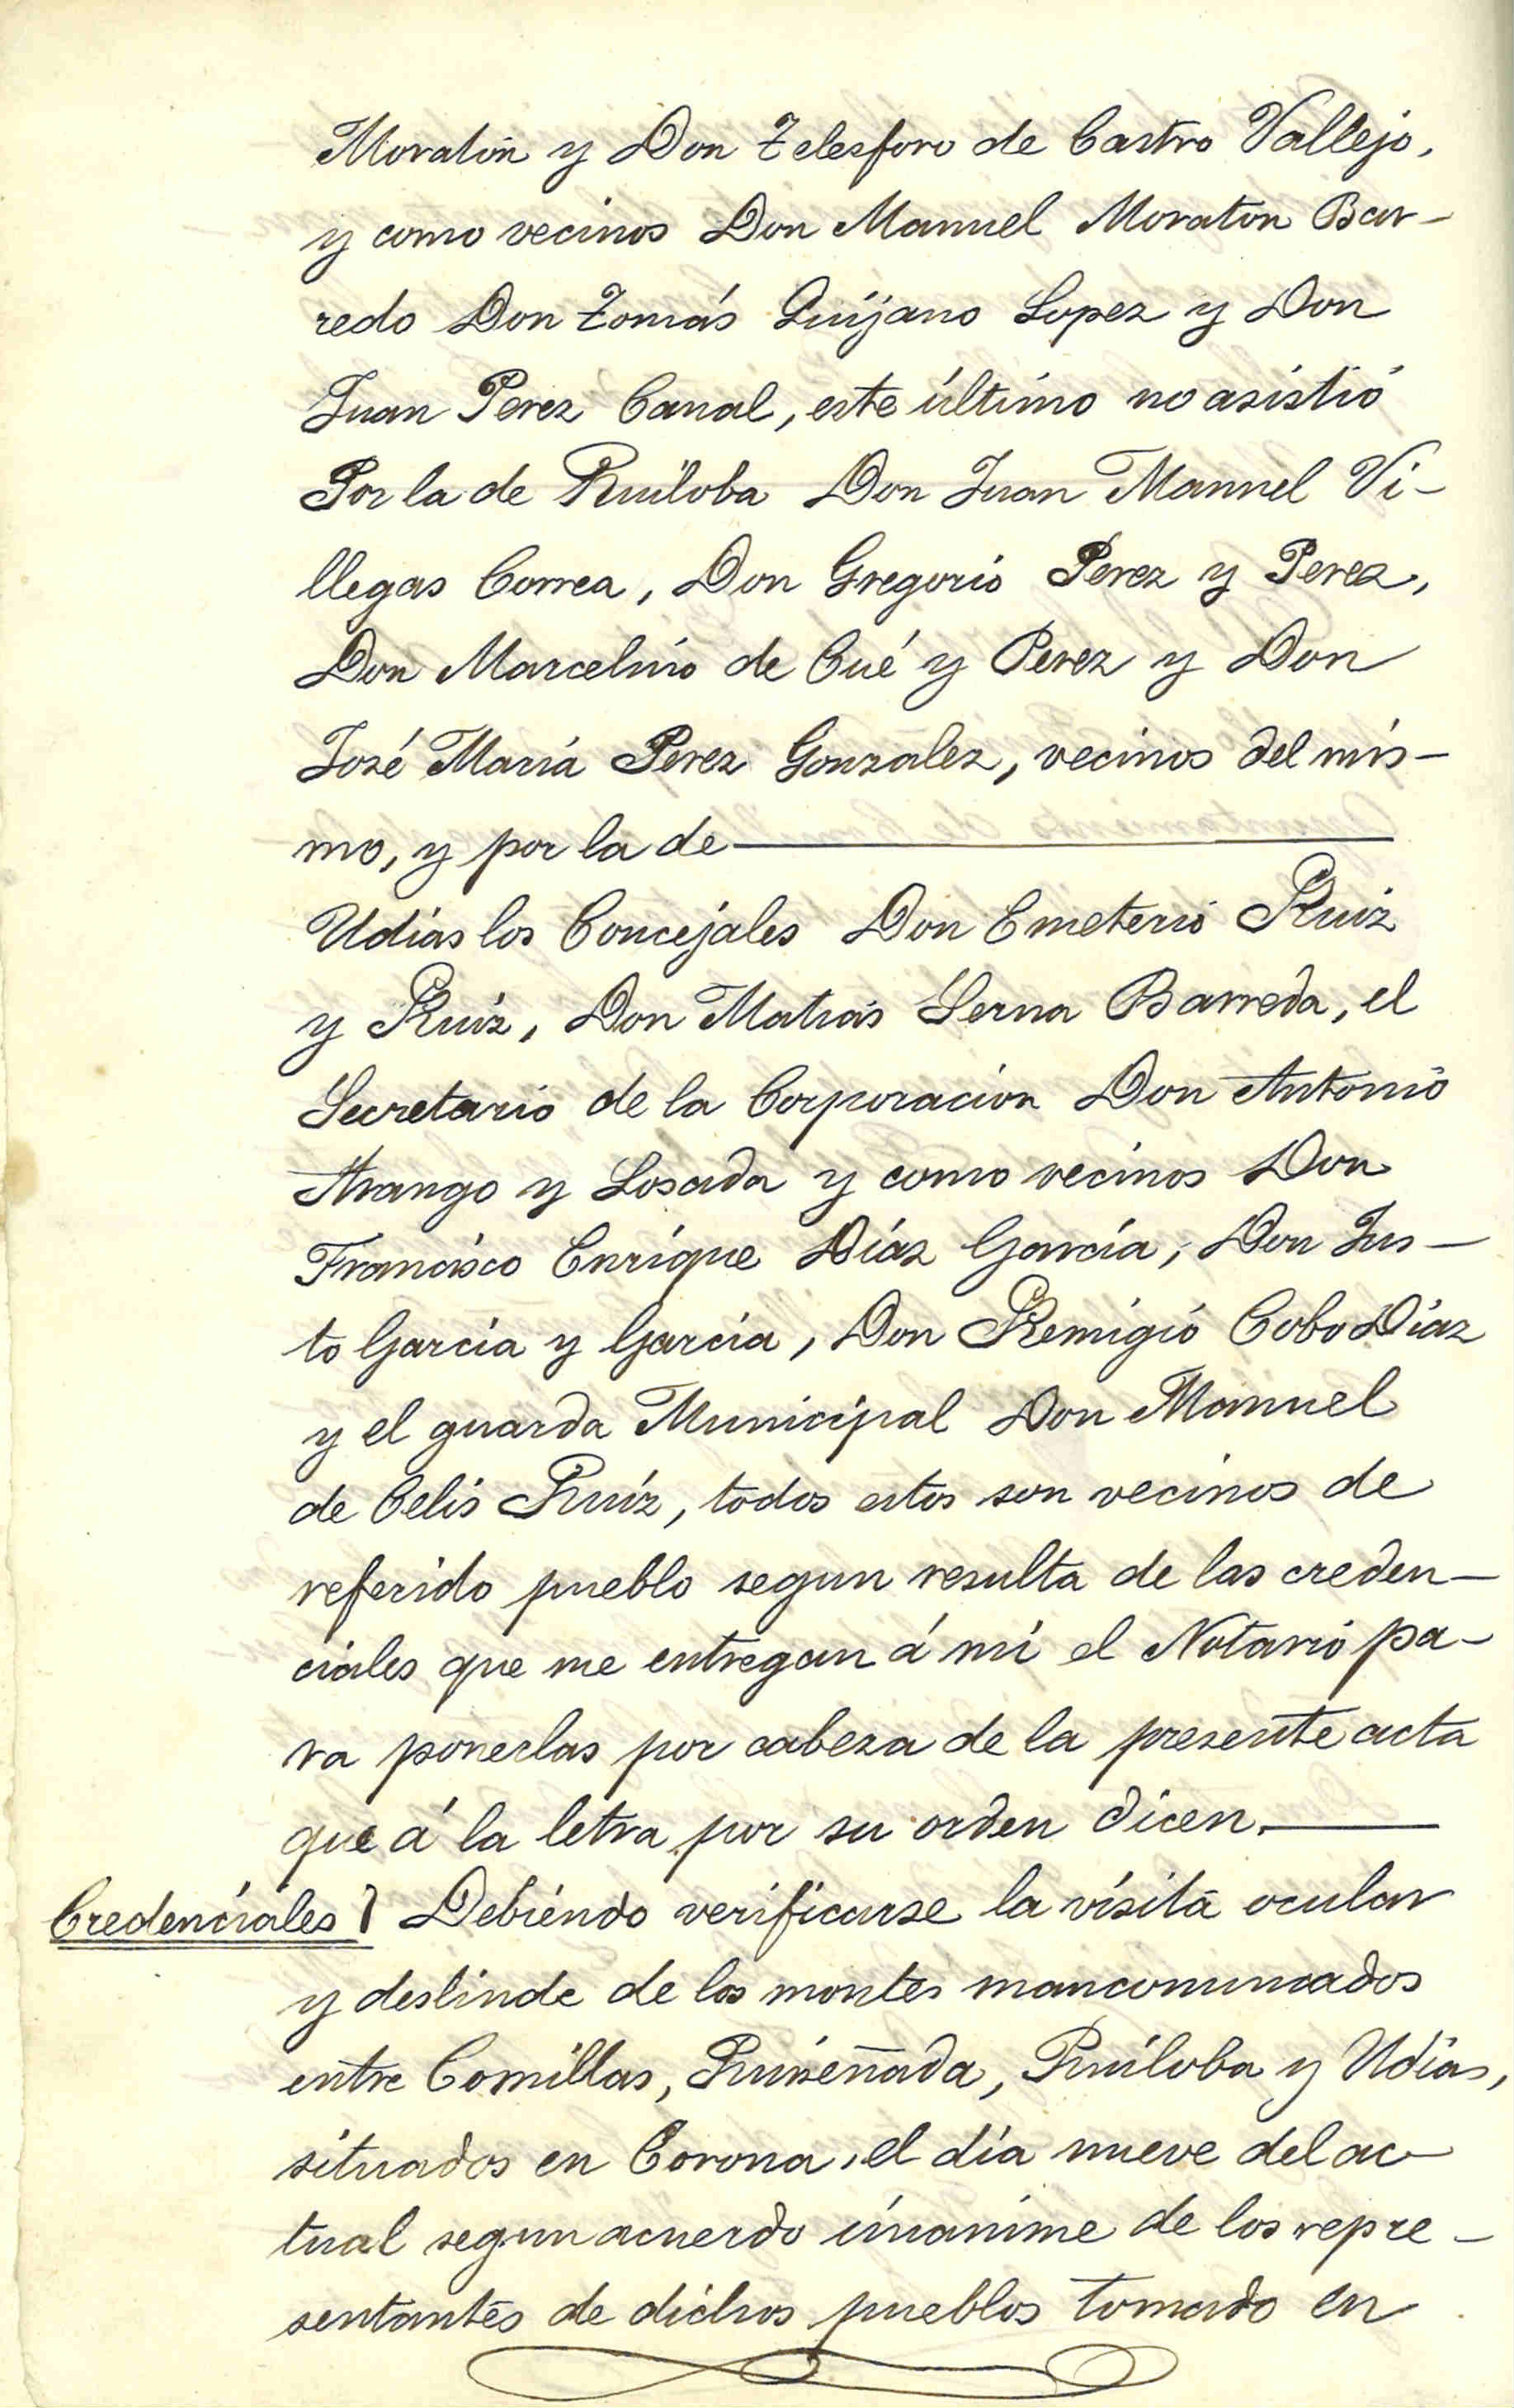 Moratón y Don Telesforo de Castro Vallejo,
y como vecinos Don Manuel Moraton Bar-
redo Don Tomás Quijano Lopez y Don
Juan Perez Canal, este último no asistió
Por la de Ruiloba Don Juan Manuel Vi-
llegas Correa, Don Gregorio Perez y Perez,
Don Marcelino de Cué y Perez y Don
José María Perez Gonzalez, vecinos del mis-
mo, y por la de
Udias los Concejales Don Emeterio Ruiz
y Ruiz, Don Matias Serna Barreda, el
Secretario de la Corporacion Don Antonio
Arango y Losada y como vecinos Don
Francisco Enrique Díaz García, Don Jus-
to Garcia y Garcia, Don Remigio Cobo Diaz
y el guarda Municipal Don Manuel
de Celis Ruíz, todos estos son vecinos de
referido pueblo segun resulta de las creden-
ciales que me entregan á mi el Notario pa-
ra ponerlas por cabeza de la presente acta
que á la letra por su orden dicen.
Credenciales } Debiendo verificarse la visita ocular
y deslinde de los montes mancomuneados
entre Comillas, Ruiseñada, Ruiloba y Udias,
situados en Corona, el día nueve del ac-
tual segun acuerdo únanime de los repre-
sentantes de dichos pueblos tomado en